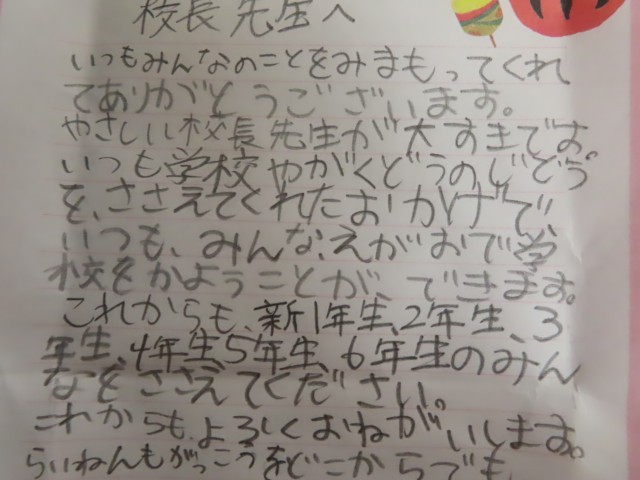 校長先生へ
いつもみんなのことをみまもってくれ
てありがとうございます。
やさしい校長先生が大すきです。
いつも学校やがくどうのじどう
を、ささえてくれたおかげで、
いつも、みんな、えがおで学
校をかようことが、できます。
これからも、新1年生、2年生、3
年生、4年生、5年生、6年生のみん
なをささえてください。
これからも、よろしくおねがいします。
らいねんもがっこうをどこからでも